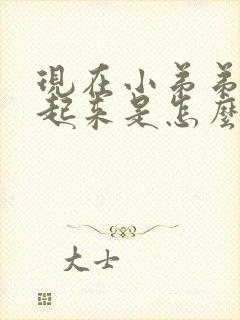 現在小弟弟
起来是怎麼
大士